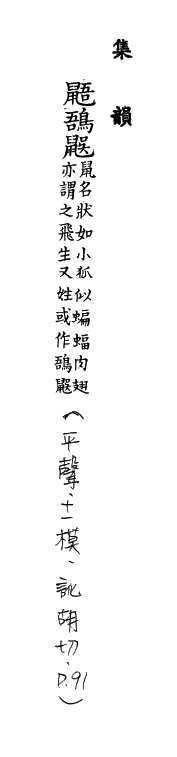 集韻
鼯
鼠名狀如小狐似蝙蝠肉翅
亦謂之飛生又姓或作
（平聲．十一模．訛胡切．P.91）